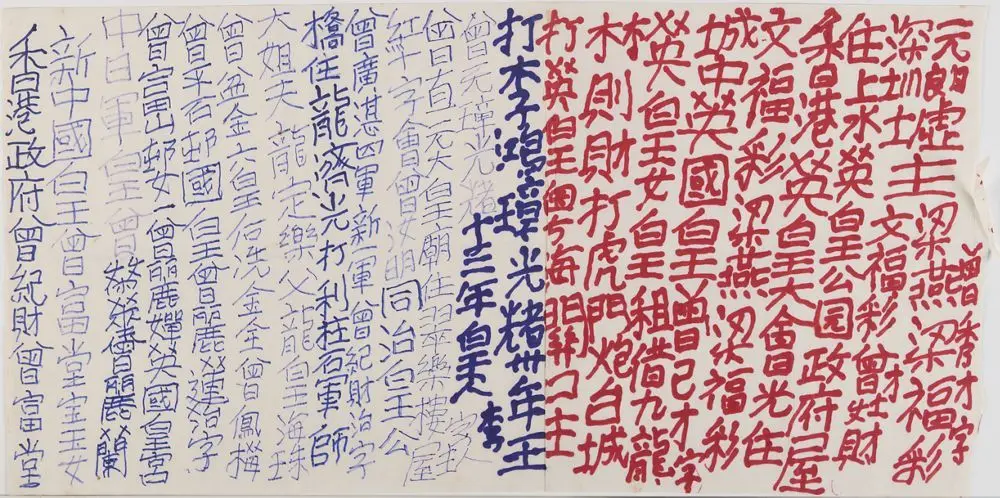 增秀才字
元朗墟主梁燕梁福彩
深圳圳文福彩曾財
住上水英皇公园政府屋
香港英皇大會光住
文福彩梁燕梁福彩
城中英國皇曾己才字
英皇女皇祖借九龍
林則財打虎門炮白城
打英皇粵海關
打李子鴻璋光緒卅年王
十三年白王
曾元璋光緒
曾自元大皇廟住翠樂樓屋
紅十字會曾汝明同治白王公
曾廣湛四軍新一軍曾紀財治字
橋住龍濟光打利莊名軍師
大姐夫龍定樂父龍皇海珠
曾丑金六皇后洗金全曾鳳梅
曾平石邨國皇曾麗蓮治字
曾富山邨女一曾麗嬋英國皇宮
中日軍白皇曾
曾麗蘭
新中國白王曾富堂宝玉女
香港政府曾紀財曾富堂